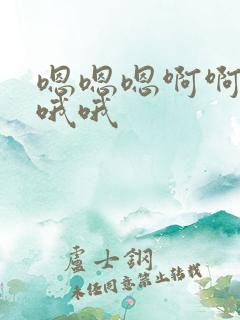 嗯嗯嗯啊啊
哦哦
盧士鋼
未经同意禁止转载